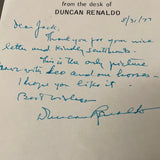 from the desk of
DUNCAN RENALDO
8/31/77
Dear Jack.
Thank you for your nice
letter and kindly sentiments.
This is the only picture
have with Leo and our horses.
I hope you like it.
Best wishes
Duncan Renaldo